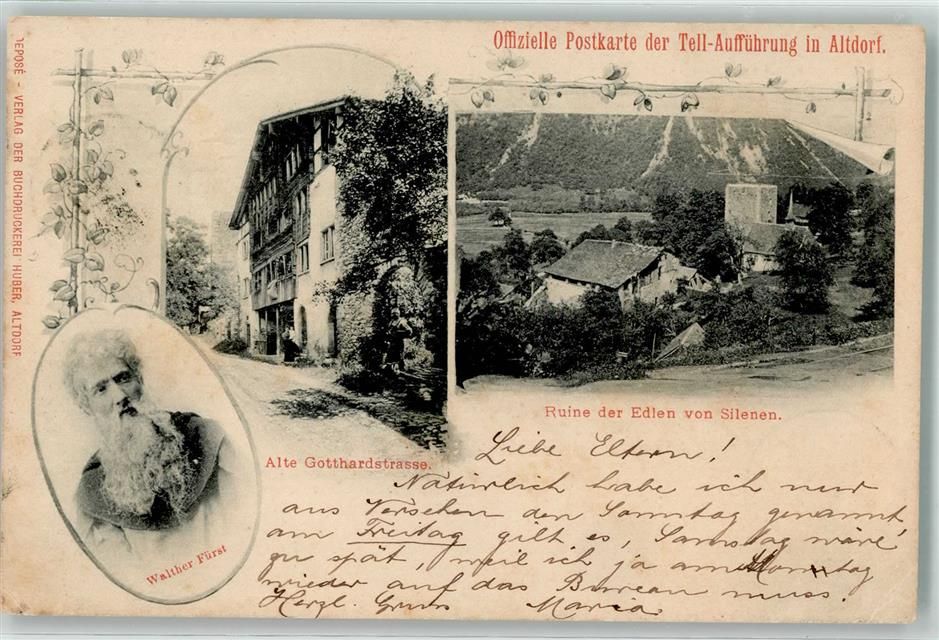 Offizielle Postkarte der Tell-Aufführung in Altdorf.
DEPOSÉ - VERLAG DER BUCHDRUCKEREI HUBER, ALTDORF
Ruine der Edlen von Silenen.
Alte Gotthardstrasse.
Walther Fürst
Liebe Eltern!
Natürlich habe ich nur
aus Versehen den Sonntag genannt,
am Freitag gilt es, Samstag wäre
zu spät, weil ich ja am Montag
wieder auf das Bureau muss.
Herzl. Gruss Maria.